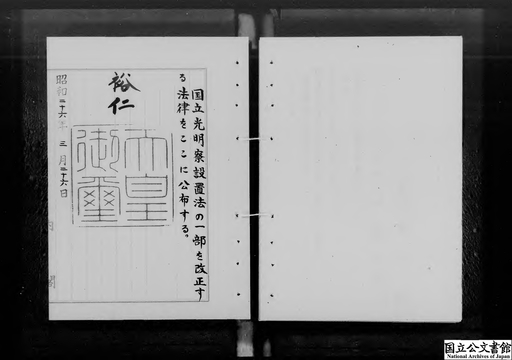 国立光明寮設置法の一部を改正す
る法律をここに公布する。
裕仁
天皇
御璽
昭和二十六年三月二十六日
内閣
国立公文書館
National Archives of Japan